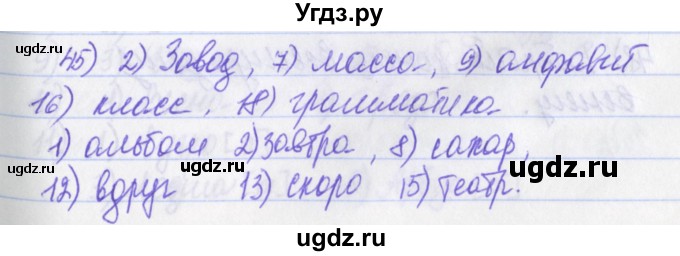 Угдз.ру
45) 2) Завод, 7) масса, 9) алфавит
16) класс, 18) грамматика.
1) альбом 2) завтра, 8) сахар,
12) вдруг 13) скоро 15) театр.
ugdz.ru